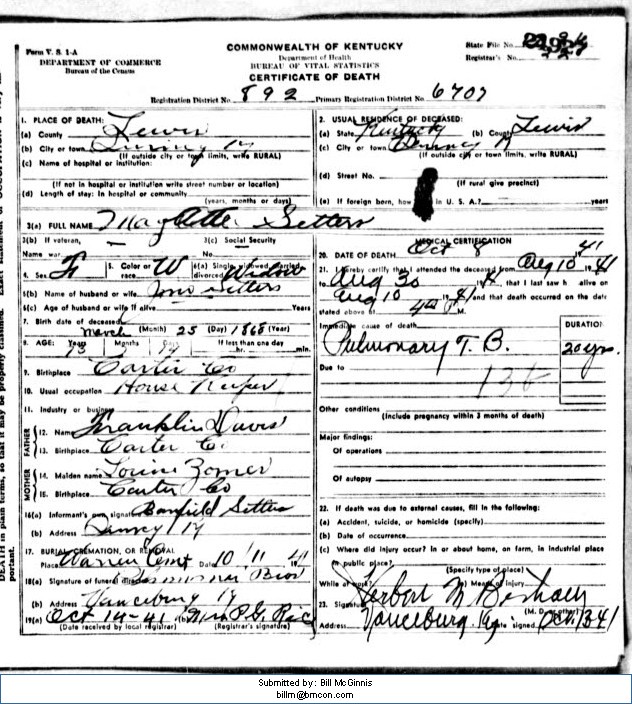 Form V. S. 1-A
DEPARTMENT OF COMMERCE
Bureau of the Census
COMMONWEALTH OF KENTUCKY
Department of Health
BUREAU OF VITAL STATISTICS
CERTIFICATE OF DEATH
State File No.
Registrar's No.
Registration District No. 892 Primary Registration District No. 6707
1. PLACE OF DEATH:
(a) County Lewis
(b) City or town Ky
(If outside city or town limits, write RURAL)
(c) Name of hospital or institution:
(If not in hospital or institution write street number or location)
(d) Length of stay: In hospital or community
(years, months or days)
2. USUAL RESIDENCE OF DECEASED:
(a) State Kentucky (b) County Lewis
(c) City or town Ky
(If outside city or town limits, write RURAL)
(d) Street No.
(If rural give precinct)
(e) If foreign born, how in U. S. A.? years
3(a) FULL NAME May Setters
3(b) If veteran,
Name war
3(c) Social Security
No.
4. Sex F 5. Color or race W 6(a) Single, widowed, married, divorced Widow
6(b) Name of husband or wife Setters
6(c) Age of husband or wife if alive Years
7. Birth date of deceased March (Month) 25 (Day) 1868 (Year)
8. AGE: Years 73 Months Days 14 If less than one day
hr. min.
9. Birthplace Carter Co
10. Usual occupation House Keeper
11. Industry or business
FATHER
12. Name Franklin Davis
13. Birthplace Carter Co
MOTHER
14. Maiden name
15. Birthplace Carter Co
16(a) Informant's own signature Banfield Setters
(b) Address Ky
17. BURIAL, CREMATION, OR REMOVAL
Place Warren Cemt Date 10/11 41
18(a) Signature of funeral director Bros
(b) Address Vanceburg Ky
19(a) Oct 14-41 (b) Mrs P. G. Rice
(Date received by local registrar) (Registrar's signature)
MEDICAL CERTIFICATION
20. DATE OF DEATH Oct 8 1941
21. I hereby certify that I attended the deceased from Aug 10 1941
to Aug 30 19 , that I last saw h alive on
Aug 10 1941 and that death occurred on the date
stated above at 4 M.
Immediate cause of death
DURATION
Pulmonary T. B. 20 yrs.
Due to
Other conditions
(Include pregnancy within 3 months of death)
Major findings:
Of operations
Of autopsy
22. If death was due to external causes, fill in the following:
(a) Accident, suicide, or homicide (specify)
(b) Date of occurrence
(c) Where did injury occur? in or about home, on farm, in industrial place
in public place?
(Specify type of place)
While at work? (e) Means of injury
23. Signature Herbert M
(M. D. or other)
Address Vanceburg, Ky Date signed Oct 13 41
DEATH in plain terms, so that it may be properly classified. Exact statement of OCCUPATION is very im-
portant.
Submitted by: Bill McGinnis
billm@bmcon.com